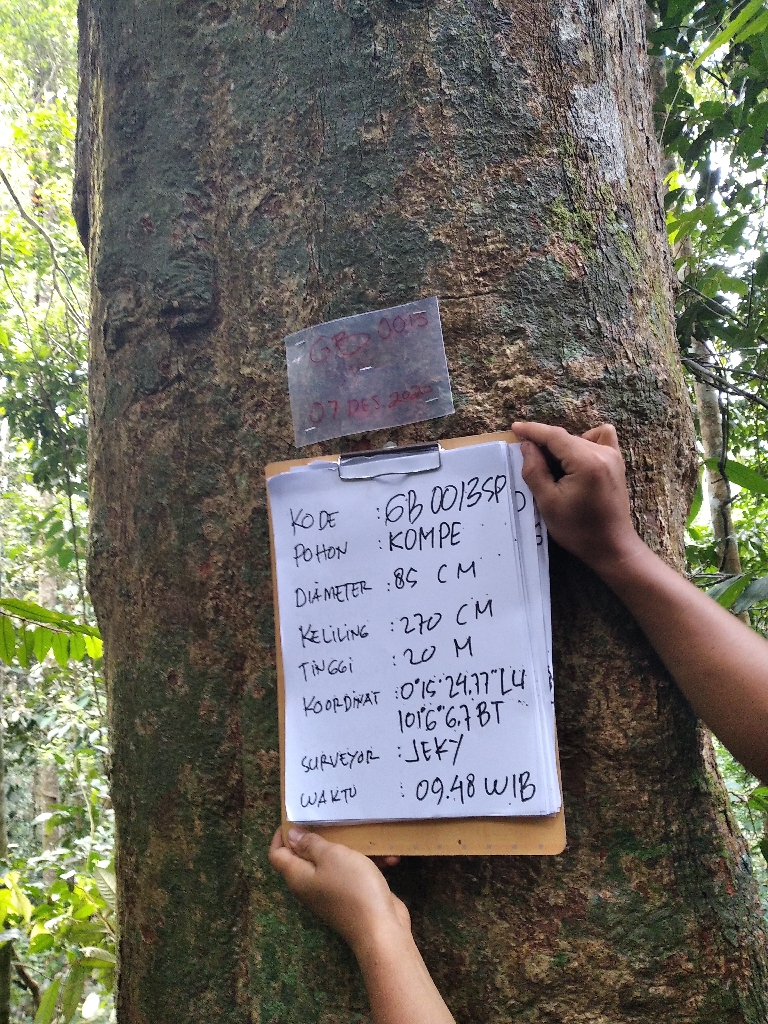 GB 0013
07 DES 2020
KODE : GB 0013SP
POHON : KOMPE
DIAMETER : 85 CM
KELILING : 270 CM
TINGGI : 20 M
KOORDINAT : 0°15'24.77" LU
101°6'6.7 BT
SURVEYOR : JEKY
WAKTU : 09.48 WIB